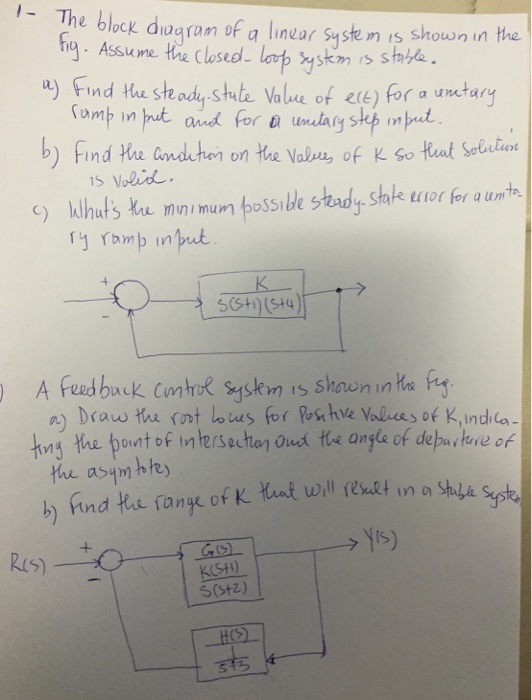 1- The block diagram of a linear system is shown in the
fig. Assume the closed-loop system is stable.
a) Find the steady-state value of e(t) for a unitary
ramp in put and for a unitary step input.
b) Find the condition on the values of K so that solution
is valid.
c) What's the minimum possible steady-state error for a unita
ry ramp input.
+
K
S(S+1)(S+4)
-
) A feedback control system is shown in the fig.
a) Draw the root locus for Positive values of K, indica-
ting the point of intersection and the angle of departure of
the asymtotes
b) find the range of K that will result in a stable system
R(S)
+
-
G(S)
K(S+1)
S(S+2)
Y(S)
H(S)
1
S+3